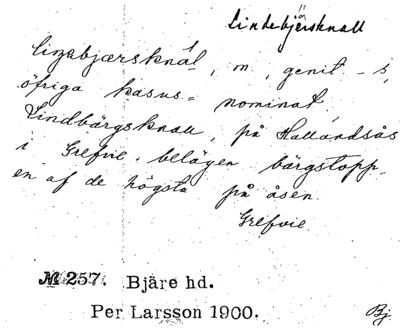 Lindebjärsknall
linebjærsknál, m, genit -s,
öfriga kasus = nominat,
Lindbärgsknall, på Hallandsås
i Grefvie, belägen bärgstopp,
en af de högsta på åsen.
Grefvie
№ 257. Bjäre hd.
Per Larsson 1900.
Bj